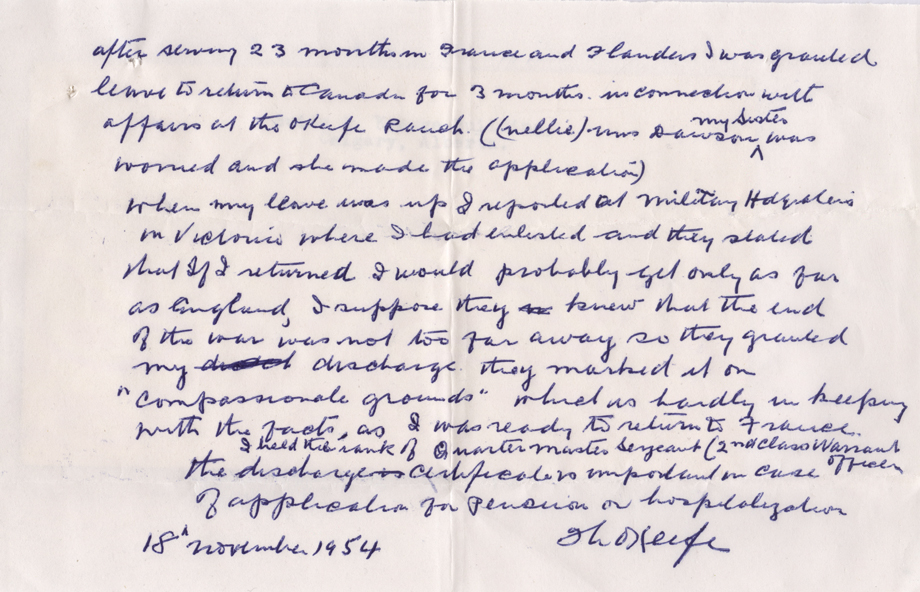 after serving 23 months in France and Flanders I was granted
leave to return to Canada for 3 months. in connection with
affairs at the O'Keefe Ranch. ((Nellie) Mrs Dawson my Sister was
worried and she made the application)
when my leave was up I reported at Military Hdqrters
in Victoria where I had enlisted and they stated
that if I returned I would probably get only as far
as England, I suppose they knew that the end
of the war was not too far away so they granted
my discharge. they marked it on
"Compassionate grounds" which is hardly in keeping
with the facts, as I was ready to return to France.
I held the rank of Quartermaster Sergeant (2nd Class Warrant Officer
the discharge certificate is important in case
of application for Pension or hospitalization
18th November 1954 O'Keefe